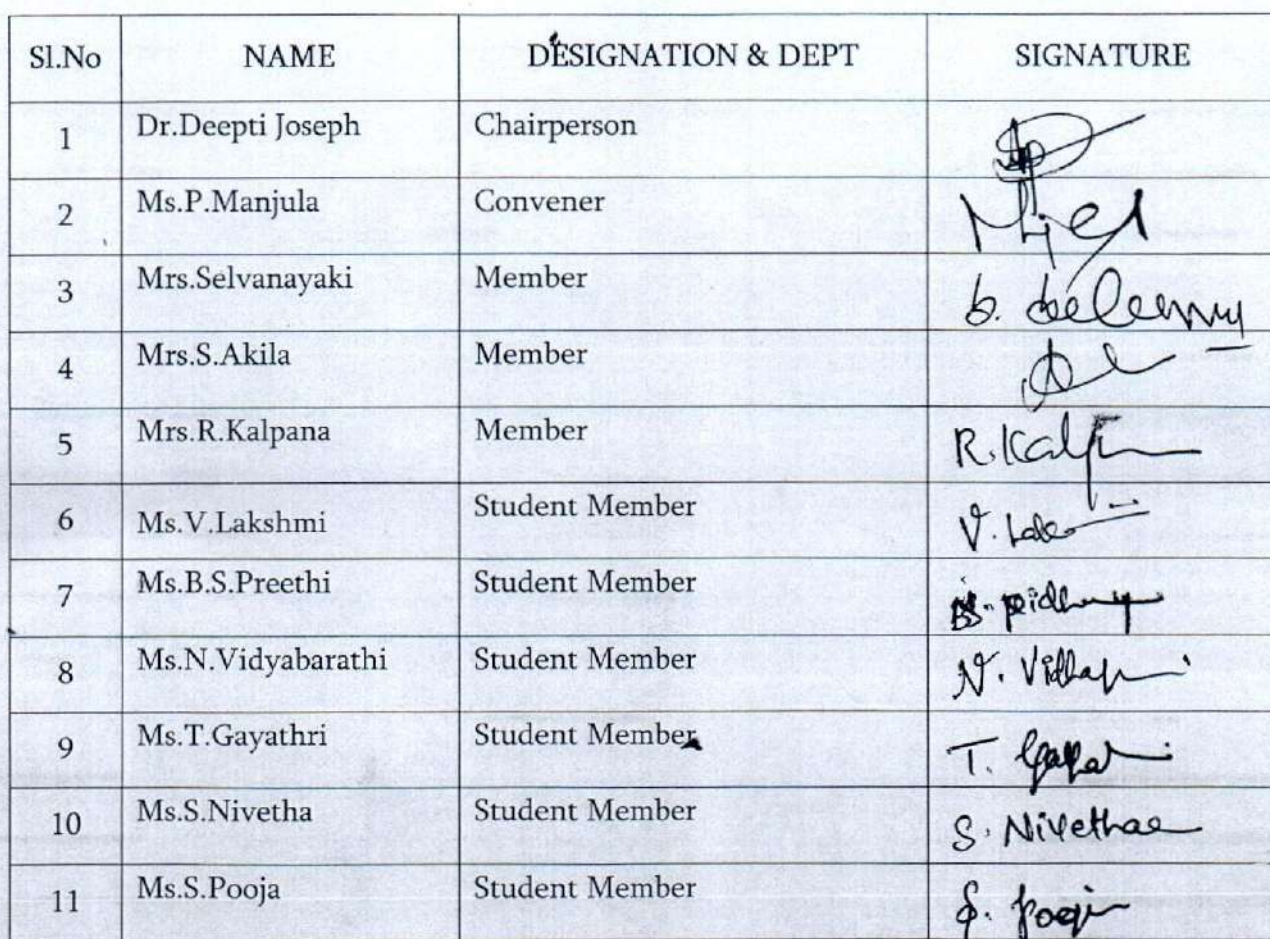 Sl.No NAME DESIGNATION & DEPT SIGNATURE
1 Dr.Deepti Joseph Chairperson
2 Ms.P.Manjula Convener
3 Mrs.Selvanayaki Member
4 Mrs.S.Akila Member
5 Mrs.R.Kalpana Member R.Kalp
6 Ms.V.Lakshmi Student Member V.
7 Ms.B.S.Preethi Student Member
8 Ms.N.Vidyabarathi Student Member N.
9 Ms.T.Gayathri Student Member T.
10 Ms.S.Nivetha Student Member S. Nivetha
11 Ms.S.Pooja Student Member S. Pooja